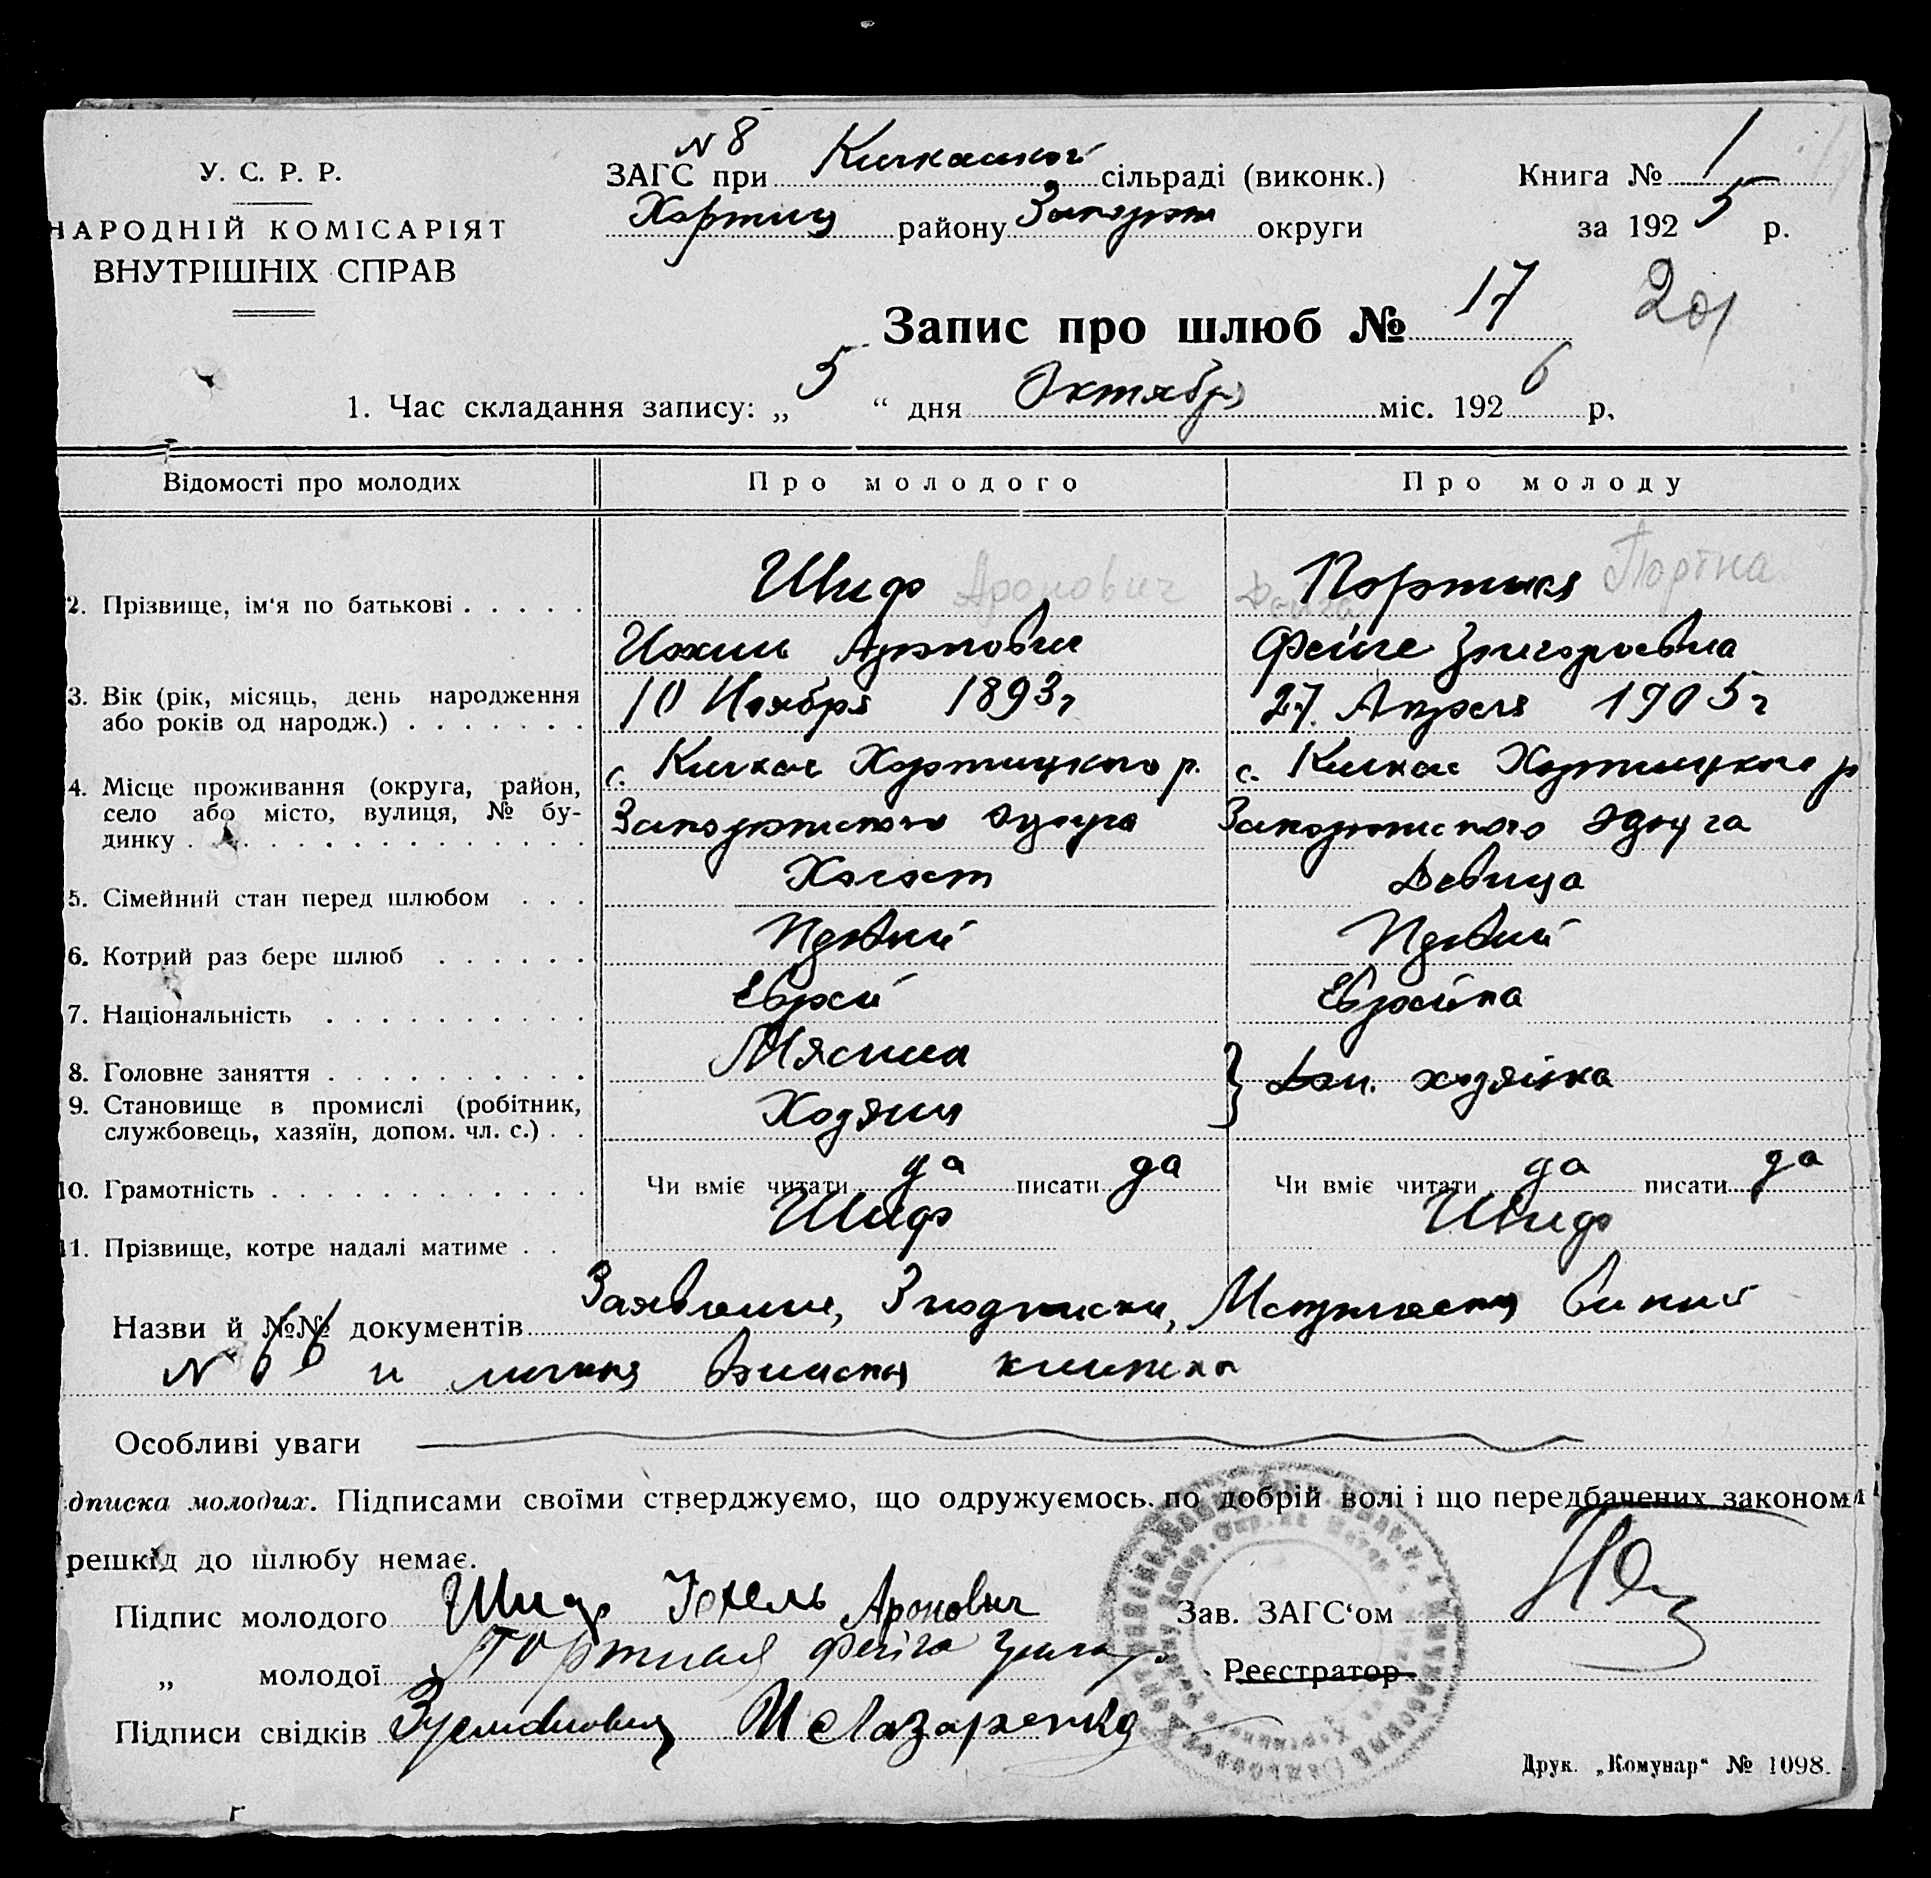 N 8
У. С. Р. Р.
ЗАГС при Кичкаської сільраді (виконк.) Книга № 1
НАРОДНІЙ КОМІСАРІЯТ
Хортиц району Запорож округи за 1925 р.
ВНУТРІШНІХ СПРАВ
Запис про шлюб № 17
1. Час складання запису: „5“ дня Октября міс. 1926 р.
Відомості про молодих Про молодого Про молоду
2. Прізвище, ім‘я по батькові Шиф Аронович Портная Портна
Иохиль Аронович Фейге Григорьевна
3. Вік (рік, місяць, день народження
або років од народж.) 10 Ноября 1893 г 27 Апреля 1905 г
4. Місце проживання (округа, район, с. Кичкас Хортицкого р. с. Кичкас Хортицкого р
село або місто, вулиця, № бу-
динку Запорожского округа Запорожского округа
5. Сімейний стан перед шлюбом Холост Девица
6. Котрий раз бере шлюб Первий Первий
7. Національність Еврей Еврейка
8. Головне заняття Мясник Дом. хозяйка
9. Становище в промислі (робітник,
службовець, хазяїн, допом. чл. с.) Хозяин
10. Грамотність Чи вміє читати да писати да Чи вміє читати да писати да
11. Прізвище, котре надалі матиме Шиф Шиф
Назви й №№ документів Заявление, 3 подписки,
и личная книжка
Особливі уваги
дписка молодих. Підписами своїми стверджуємо, що одружуємось по добрій волі і що передбачених законом
решкід до шлюбу немає.
Підпис молодого Шиф Іохель Аронович Зав. ЗАГС‘ом
„ молодої Портная Фейга Реєстратор
Підписи свідків И Лазаренко
Друк. „Комунар“ № 1098.